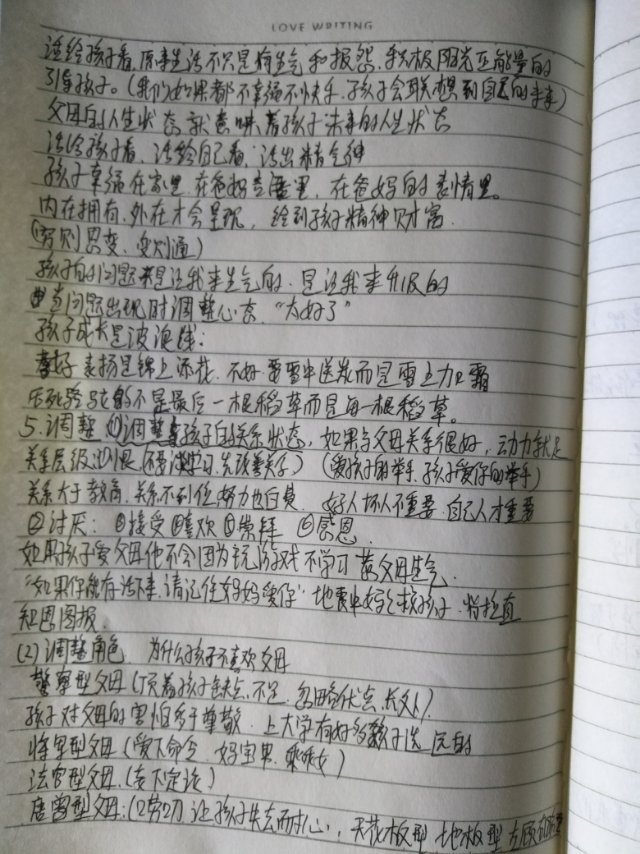 LOVE WRITING
活给孩子看,原来生活不只是有生气和报怨,积极阳光正能量的
引导孩子。(我们如果都不幸福不快乐,孩子会联想到自己的未来)
父母的人生状态就意味着孩子未来的人生状态
活给孩子看,活给自己看,活出精气神
孩子幸福在家里,在爸妈言语里,在爸妈的表情里。
内在拥有,外在才会呈现,给到孩子精神财富.
(穷则思变、变则通)
孩子的问题不是让我来生气的,是让我来升级的
当问题出现时调整心态,"太好了"
孩子成长是波浪线:
好 表扬是锦上添花,不好 需雪中送炭而是雪上加霜
压死骆驼的不是最后一根稻草而是每一根稻草。
5.调整 ①调整与孩子的关系状态,如果与父母关系很好,动力就足
关系层级:①恨(不要谈学习,先改善关系) (爱孩子的举手,孩子爱你的举手)
关系大于教育,关系不到位,努力也白费. 好人坏人不重要,自己人才重要
②讨厌: ③接受 ④喜欢 ⑤崇拜 ⑥感恩
如果孩子爱父母他不会因为玩游戏不学习 惹父母生气.
"如果你能存活下来,请记住妈妈爱你" 地震中妈妈救孩子.
知恩图报
(2)调整角色. 为什么孩子不喜欢父母
警察型父母(盯着孩子缺点、不足,忽略优点、长处).
孩子对父母的害怕多于尊敬. 上大学有好多孩子选远的
将军型父母(爱下命令、妈宝男、乖乖女)
法官型父母.(爱下定论)
唐僧型父母:(叨叨叨)让孩子失去耐心, 天花板型 地板型